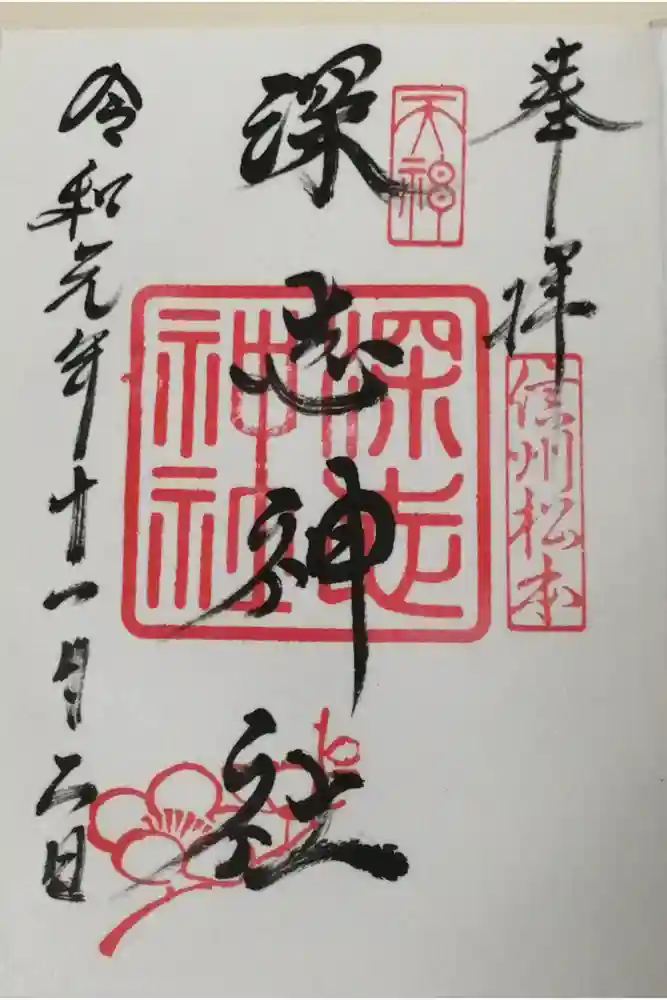 奉拝
信州松本
天神
深志神社
深志神社
令和元年十一月二日